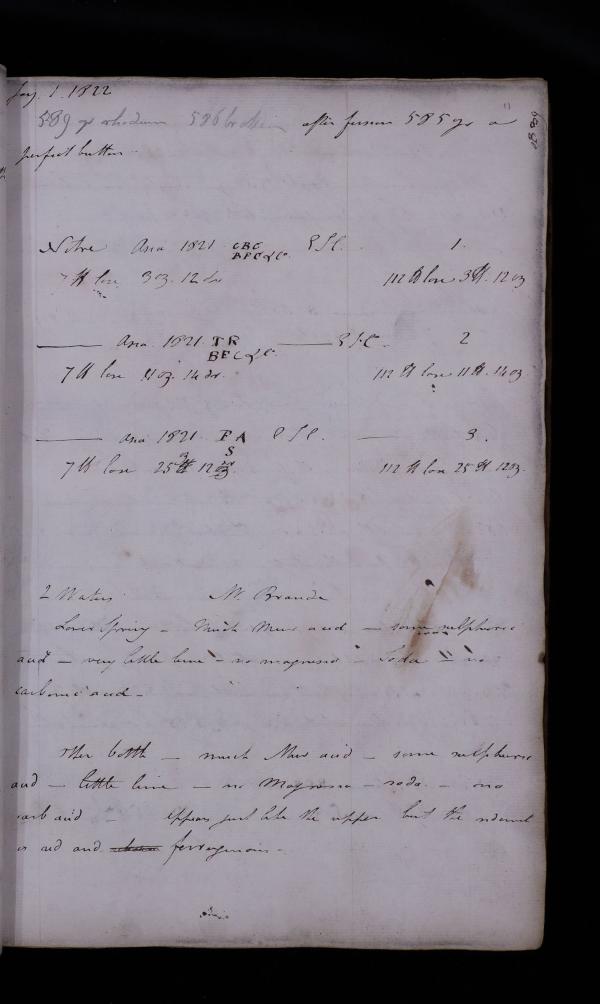 Jany. 1. 1822
589 gr rhodium 586 broken after fusion 585 gr a
perfect button
Nitre Ana 1821 CBC ESC. 1.
BPC & Co
7 lb lose 3 oz. 12 dr 112 lb lose 3 lb. 12 oz
Ana. 1821. TR ESC. 2
BEC & C.
7 lb lose 11 oz. 14 dr. 112 lb lose 11 lb. 14 oz
Ana 1821. FA ESC. 3.
S
7 lb lose 25 oz 12 dr. 112 lb lose 25 lb 12 oz.
2 Waters Mr. Brande
Lower Spring – Much Mur acid – some sulphuric
acid – very little lime – no magnesia – Soda – no
carbonic acid –
Other bottle – much Mur acid – some sulphuric
acid – little lime – no Magnesia – soda – no
carb acid Appears just like the upper but the
is red and ferruginous –